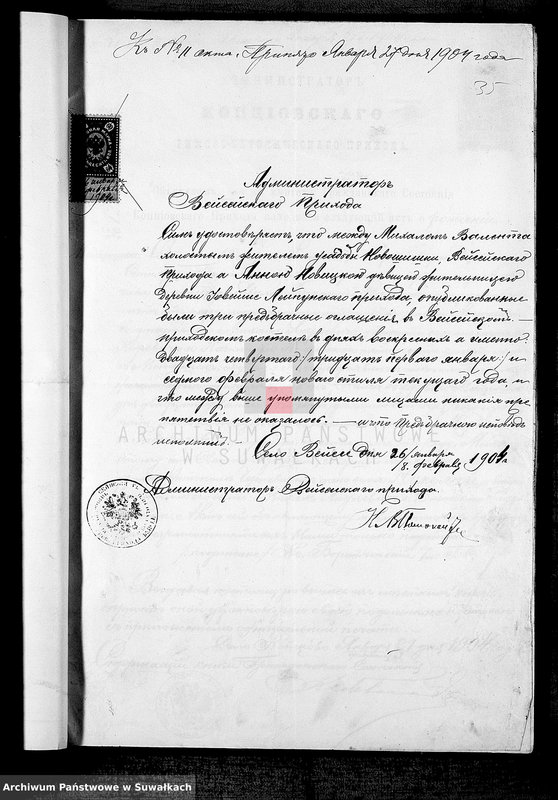 Къ № 11 акта. Принято Января 27 дня 1904 года
35
Администраторъ
Вейсейскаго Прихода
Симъ удостовѣряетъ, что между Михаломъ Валента
холостымъ жителемъ усадьбы Новошишки, Вейсейскаго
Прихода а Анною Новицкою дѣвицей жительницей
деревни Лейпунскаго прихода, опубликованные
были три предбрачные оглашенія, въ Вейсейскомъ
приходскомъ костелѣ въ дняхъ воскресныхъ а именно:
двадцать четвертаго /: тридцать перваго января :/ и
седьмого февраля новаго стиля текущаго года и
что между выше упомянутыми лицами никакія пре
пятствія не оказалось. — и что предбрачную исповѣдь
исполнили
Село Вейсеи дня 26/января 8 февраля 1904
Администраторъ Вейсейскаго прихода
ARCHIWUM PAŃSTWOWE
W SUWAŁKACH
Archiwum Państwowe w Suwałkach